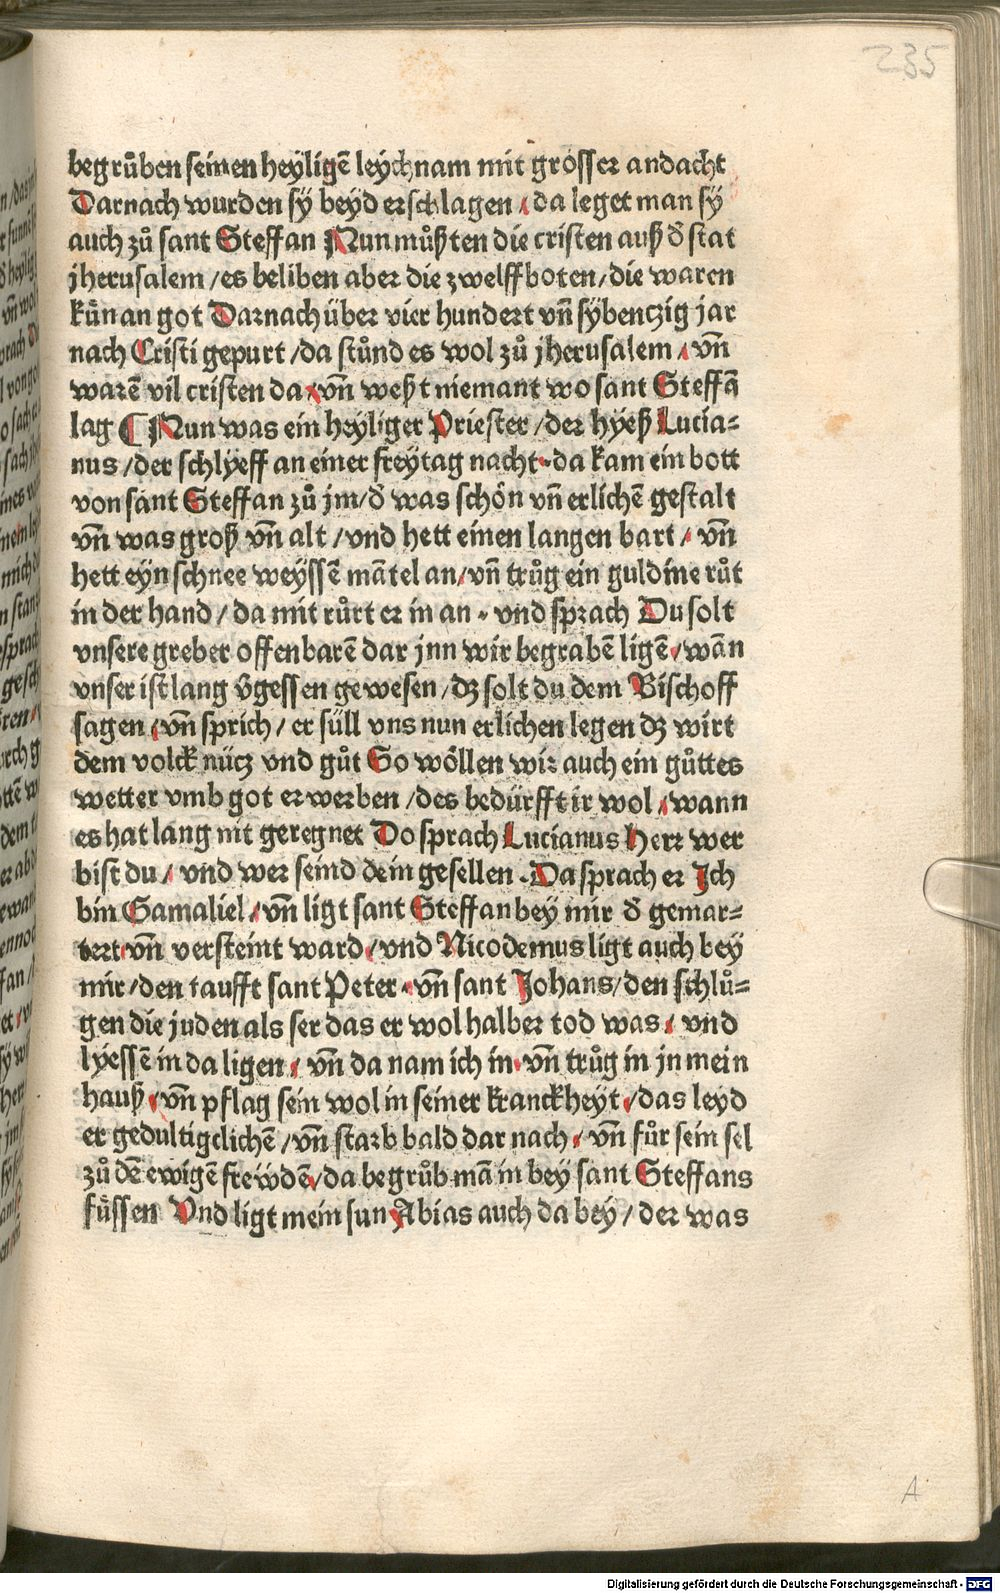 235
begrůben seinen heyligē leychnam mit grosser andacht
Darnach wurden sÿ beyd erschlagen / da leget man sÿ
auch zů sant Steffan Nun můßten die cristen auß ð stat
jherusalem / es beliben aber die zwelffboten / die waren
kůn an got Darnach über vier hundert vn̄ sybenczig jar
nach Cristi gepurt / da stůnd es wol zů jherusalem / vn̄
warē vil cristen da / vn̄ weßt niemant wo sant Steffā
lag ¶ Nun was ein heyliger Priester / der hyeß Lucia-
nus / der schlyeff an einer freytag nacht · da kam ein bott
von sant Steffan zů jm / ð was schön vn̄ erlichē gestalt
vn̄ was groß vn̄ alt / vnd hett einen langen bart / vn̄
hett eyn schnee weyssē mātel an / vn̄ trůg ein guldine růt
in der hand / da mit růrt er in an · vnd sprach Du solt
vnsere greber offenbarē dar jnn wir begrabē ligē / wān
vnser ist lang v̄gessen gewesen / dz solt du dem Bischoff
sagen / vn̄ sprich / er süll vns nun erlichen legen dz wirt
dem volck nücz vnd gůt So wöllen wir auch ein gůttes
wetter vmb got erwerben / des bedürfft ir wol / wann
es hat lang nit geregnet Do sprach Lucianus Herr wer
bist du / vnd wer seind dein gesellen · Da sprach er Ich
bin Gamaliel / vn̄ ligt sant Steffan bey mir ð gemar-
tert vn̄ versteint ward / vnd Nicodemus ligt auch bey
mir / den taufft sant Peter · vn̄ sant Johans / den schlů-
gen die juden als ser das er wol halber tod was / vnd
lyessē in da ligen / vn̄ da nam ich in / vn̄ trůg in jn mein
hauß / vn̄ pflag sein wol in seiner kranckheyt / das leyd
er gedultigclichē / vn̄ starb bald dar nach / vn̄ fůr sein sel
zů dē ewigē frewdē / da begrůb mā in bey sant Steffans
fůssen Vnd ligt mein sun Abias auch da bey / der was
A
Digitalisierung gefördert durch die Deutsche Forschungsgemeinschaft - DFG